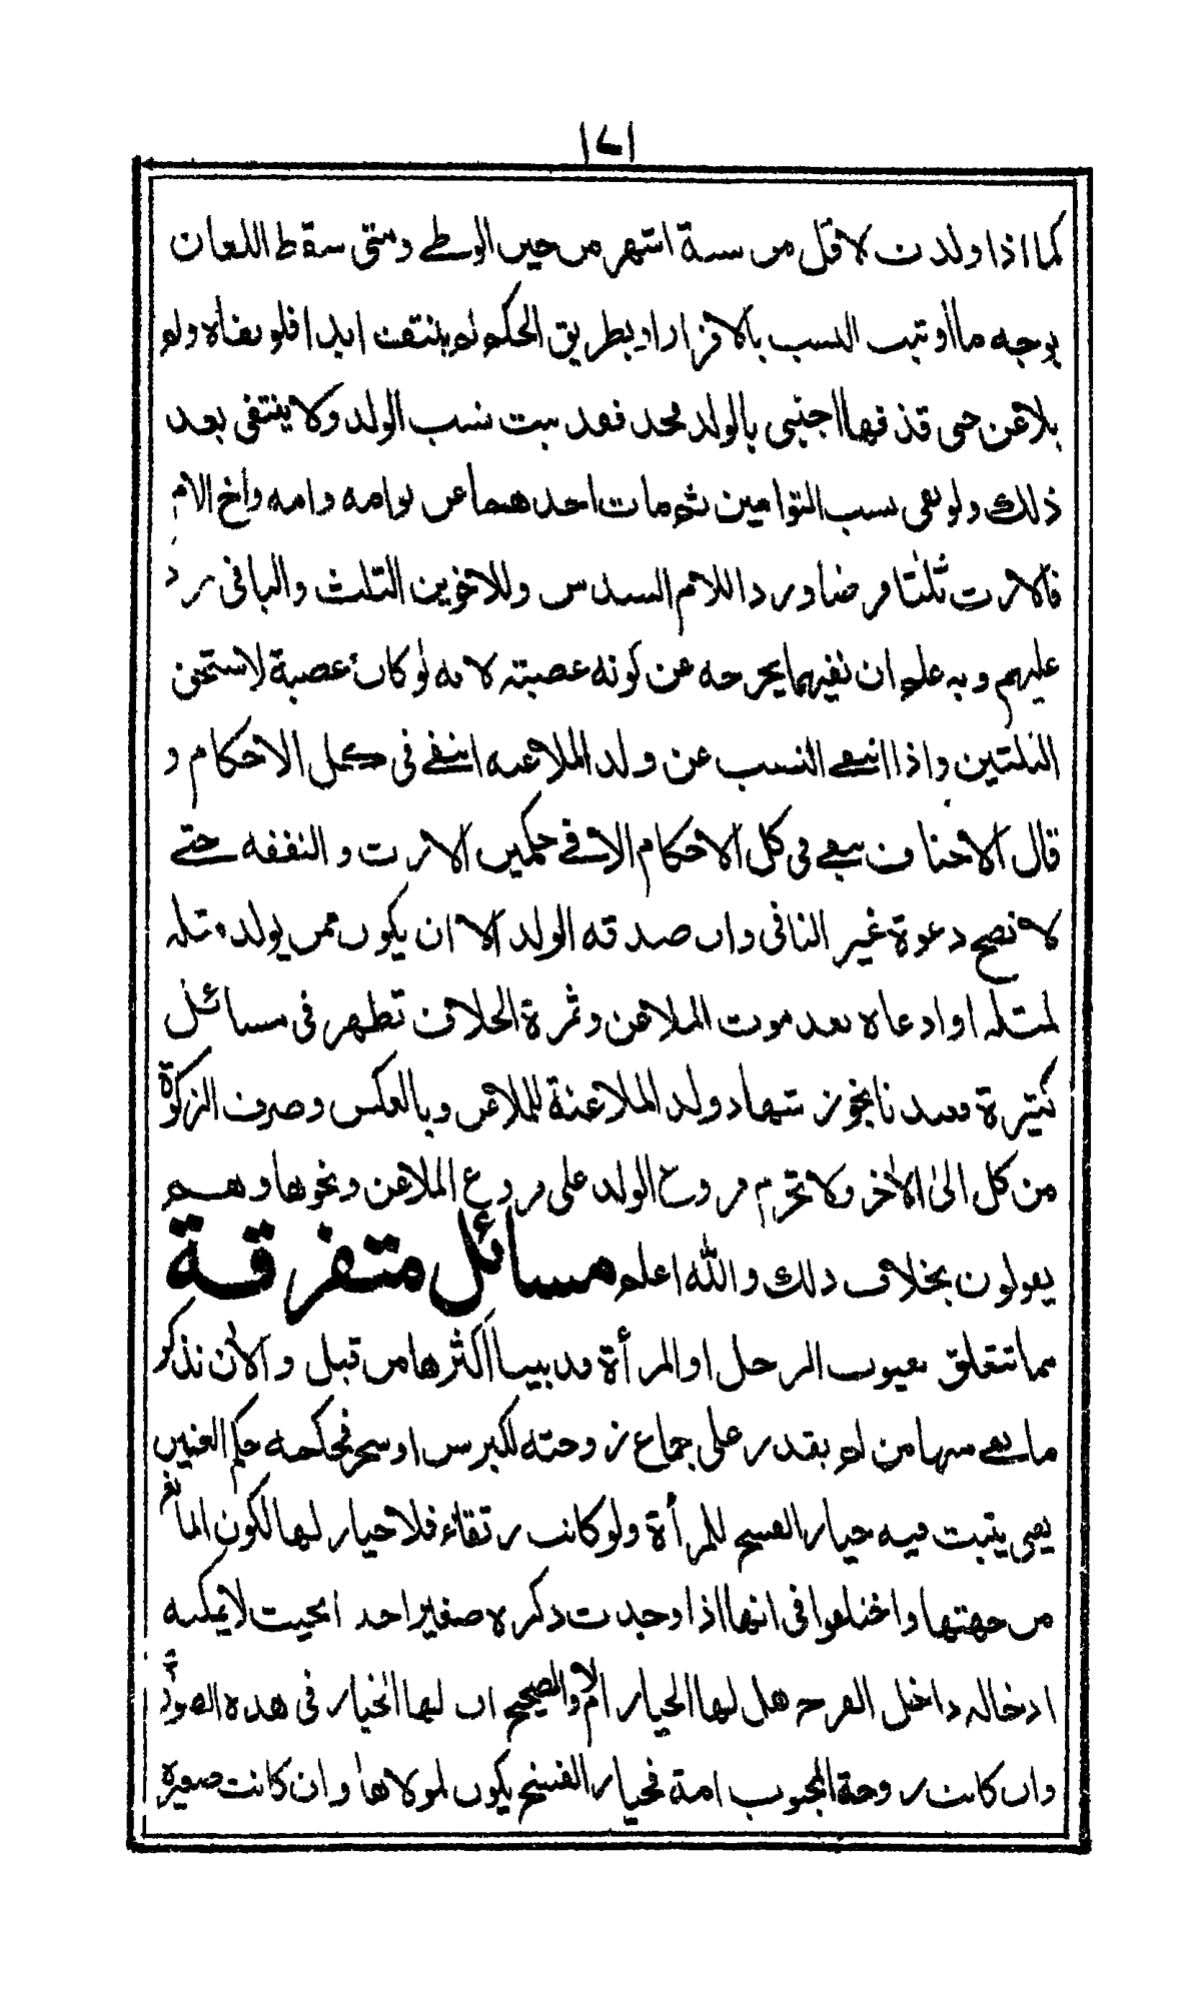 ١٧١
كما اذا ولدت لاقل من ستة اشهر من حين الوطي ومتى سقط اللعان
بوجه ما او ثبت النسب بالاقرار او بطريق الحكم لم ينتف ابدا فلو نفاه ولم
يلاعن حتى قذفها اجنبي بالولد فحد فقد ثبت نسب الولد ولا ينتفى بعد
ذلك ولو نفى نسب التوامين ثم مات احدهما عن توامه وامه واخ لام
فالارث ثلثا فرضا وردا للام السدس وللاخوين الثلث والباقى رد
عليهم وبه علم ان نفيهما يخرجه عن كونه عصبته لانه لو كان عصبة لاستحق
الثلثين واذا انتفى النسب عن ولد الملاعنه انتفى فى كل الاحكام و
قال الاحناف يبقى فى كل الاحكام الا فى حكمين الارث والنفقه حتى
لا تصح دعوة غير النافى وان صدقه الولد الا ان يكون ممن يولد مثله
لمثله او ادعاه بعد موت الملاعن وثمرة الخلاف تظهر فى مسائل
كثيرة فعندنا يجوز شهاد ولد الملاعنة للملاعن وبالعكس وصرف الزكوة
من كل الى الاخر ولا تحرم فروع الولد على فروع الملاعن ونحوها وهم
يقولون بخلاف ذلك والله اعلم مسائل متفرقة
مما تتعلق بعيوب الرجل او المرأة قد بينا اكثرها من قبل والان نذكر
ما بقى منها من لم يقدر على جماع زوجته لكبر سن او سحر فحكمه حكم العنين
يعنى يثبت فيه خيار الفسخ للمرأة ولو كانت رتقاء فلا خيار لها لكون المانع
من جهتها واختلفوا فى انها اذا وجدت ذكره صغيرا جدا بحيث لا يمكنه
ادخاله داخل الفرج هل لها الخيار ام لا والصحيح ان لها الخيار فى هذه الصورة
وان كانت زوجة المجبوب امة فخيار الفسخ يكون لمولاها وان كانت صغيرة